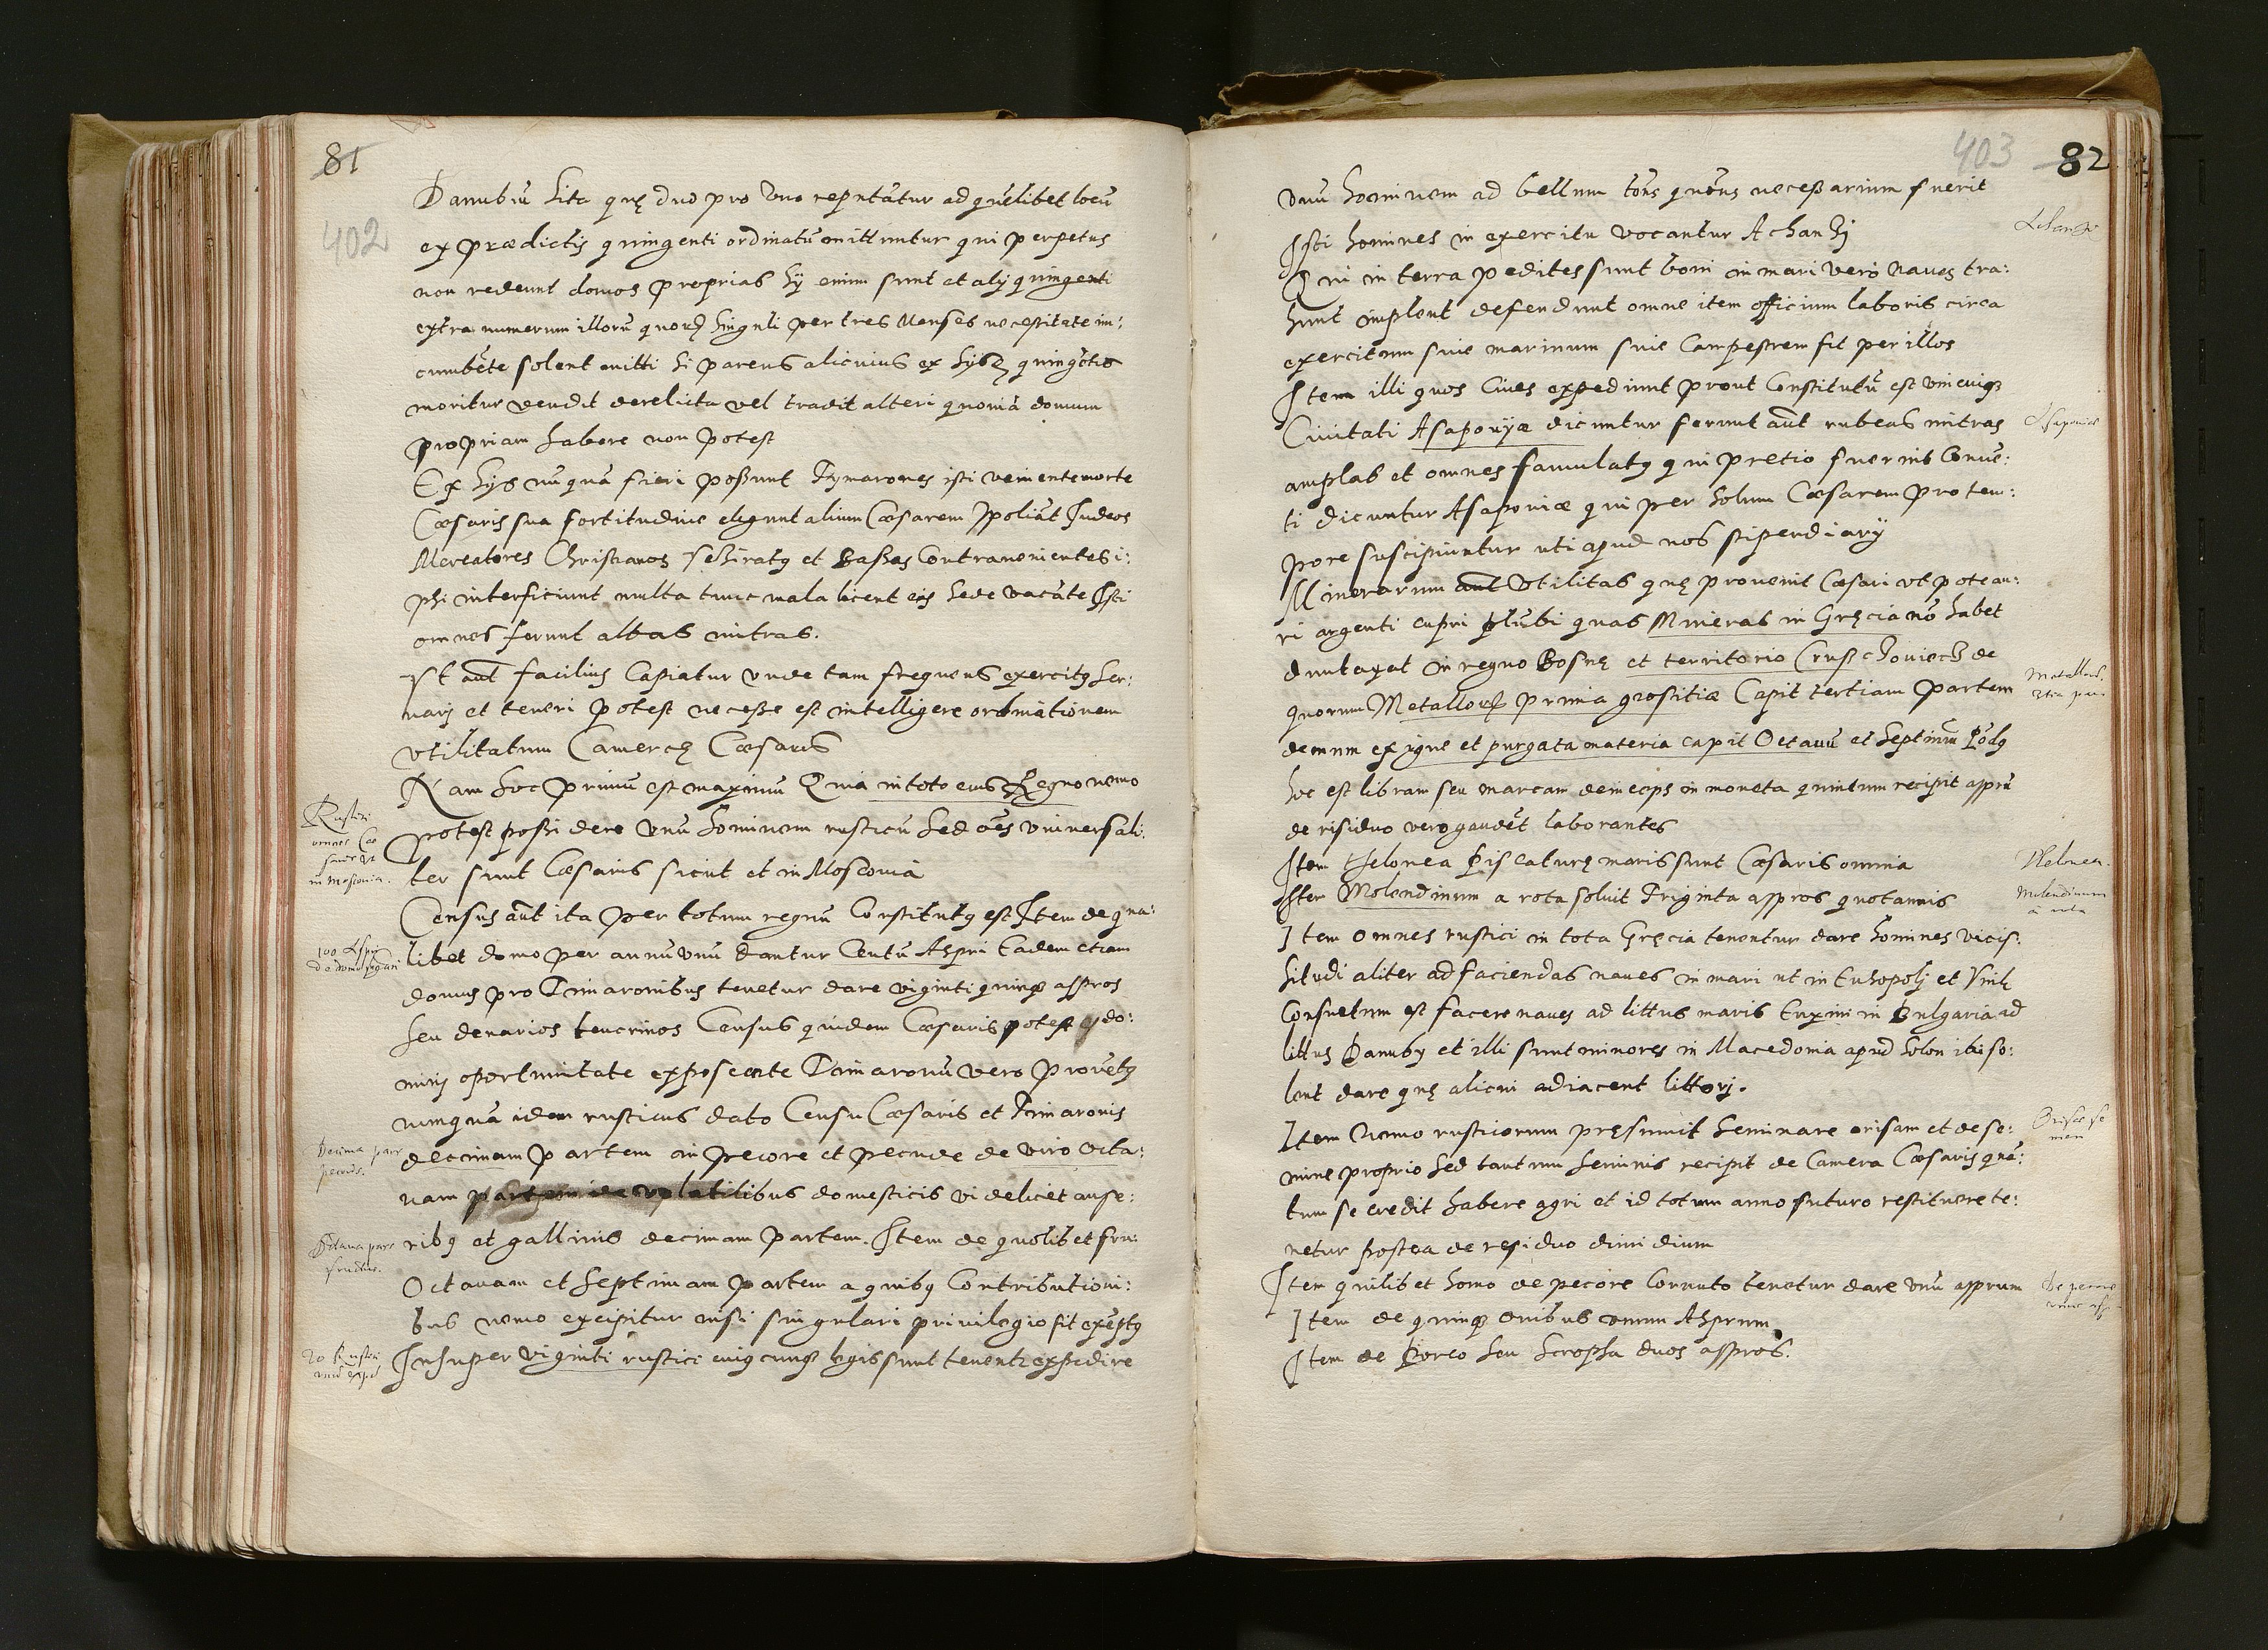 81
402
Danubiũ sita quę duo pro uno reputãtur ad quẽlibet locũ
ex prædictis quingenti ordinatũ mittuntur qui perpetuo
non redeunt domos proprias hÿ enim sunt et alÿ quingenti
extra numerum illorũ quorũ singuli per tres menses necessitate in:
cumbẽte solent mitti Si parens alicuius ex hÿs quingẽtis
moritur vendit derelicta vel tradit alteri quoniã domum
propriam habere non potest
Ex hÿs nũquã fieri possunt Tymarones isti veniente morte
Cæsaris sua fortitudine eligunt alium Cæsarem spoliãt Iudeos
Mercatores Christianos et Bassas Contravenientes i:
psi interficiunt multa tunc mala licent eis sede vacãte Isti
omnes ferunt albas mitras.
Vt aut facilius Capiatur unde tam frequens exercitus ser:
varj et teneri potest necesse est intelligere ordinationem
vtilitatum Camerę Cæsaris
Nam hoc primũ est maximũ Quia in toto eius Regno nemo
potest possidere unũ hominem rusticũ sed oẽs universali:
ter sunt Cæsaris sicut et in Mosconia
Census aut ita per totum regnũ Constitutus est Item de qua:
libet domo per annũ unũ dantur Centũ Aspri Eadem etiam
domus pro Timaronibus tenetur dare viginti quinque aspros
seu denarios teucrinos Census quidem Cæsaris potest do:
minj oportunitate exposcente Timaronũ vero proventus
nunquã idem rusticus dato Censu Cæsaris et Timaronis
decimam partem in pecore et pecude de viro Octa:
nam partem de volatilibus domesticis videlicet anse:
ribus et gallinis decimam partem. Item de quolibet fru:
Octauam et septimam partem a quibus Contributioni:
bus nemo excipitur nisi singulari privilegio sit exẽptus
Insuper viginti rustici cuiuscunque legis sunt tenent expedire
Rustici
omnes Cæ
saris ut
in Mosconia.
100 Aspri
Decima pars
pecudis.
Octaua pars
fructus.
20 Rustici
403
82
unũ hominem ad bellum toẽs quoẽs necessarium fuerit
Isti homines in exercitu vocantur Achanzi
Qui in terra pedites sunt boni in mari vero naves tra:
hunt implent defendunt omne item officium laboris circa
exercitum sive marinum sive Campestrem fit per illos
Item illi quos Cives expediunt prout Constitutũ est unicuique
Civitati Asaponÿæ dicuntur ferunt aũt rubeas mitras
amplas et omnes famulatus qui pretio fuerint Conve:
ti dicuntur Asaponiæ qui per solum Cæsarem pro tem:
pore suscipiuntur uti apud nos stipendiarÿ
Minerarum aut Vtilitas quę provenit Cæsari vt pote au:
ri argenti cupri plũbi quas Mineras in Gręcia nõ habet
duntaxat in regno Bosnę et territorio Crusschoviech de
quorum Metallorũ prima grositiæ Capit tertiam partem
demum ex igne et purgata materia capit Octauũ et septimũ põdus
hoc est libram seu marcam deinceps in moneta quintum recipit asprũ
de risiduo vero gaudẽt laborantes
Item thelonea Piscaturę maris sunt Cæsaris omnia
Item Molendinum a rota soluit Triginta aspros quotannis
Item omnes rustici in tota Gręcia tenentur dare homines vicis:
situdi aliter ad faciendas naves in mari ut in
Consuetum est facere naves ad littus maris Euxini in Bulgaria ad
littus Danubÿ et illi sunt minores in Macedonia apud solon ibi so:
lent dare quę alicui adiacent littorj.
Item Nemo rusticorum pręsumit seminare orisam et de se:
mine proprio sed tantum seminis recipit de Camera Cæsaris quã:
tum se credit habere agri et id totum anno futuro restituere te:
netur postea de residuo dimidium
Item quilibet homo de pecore Cornuto tenetur dare unũ asprum
Item de quinque ovibus unum Asprum
Item de Porco seu Scropha duos aspros.
Achanzi
Asaponiæ
Thelonea.
Molendinum
a rota
Orisæ se
men
De pecore